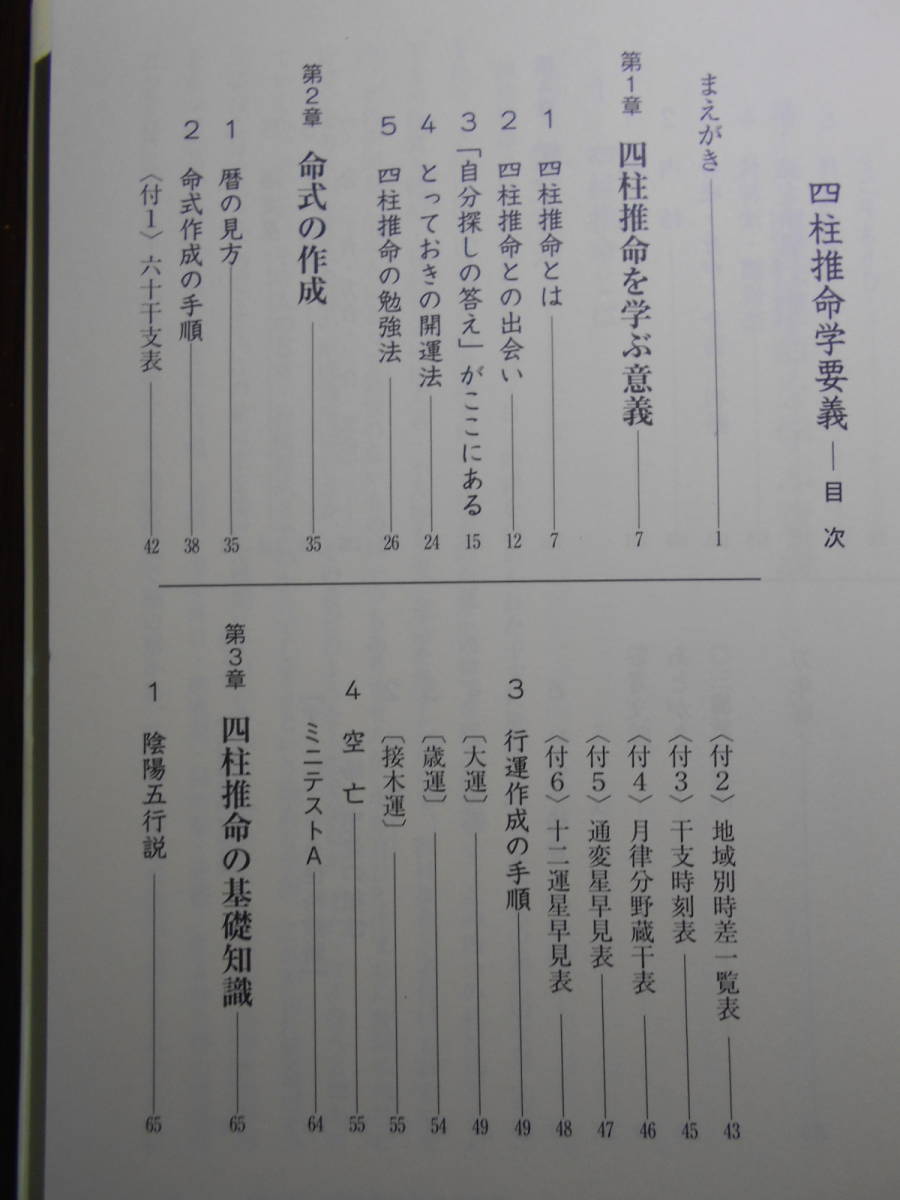 四柱推命学要義――目次
まえがき 1
第1章 四柱推命を学ぶ意義 7
1 四柱推命とは 7
2 四柱推命との出会い 12
3 「自分探しの答え」がここにある 15
4 とっておきの開運法 24
5 四柱推命の勉強法 26
第2章 命式の作成 35
1 暦の見方 35
2 命式作成の手順 38
〈付1〉六十干支表 42
〈付2〉地域別時差一覧表 43
〈付3〉干支時刻表 45
〈付4〉月律分野蔵干表 46
〈付5〉通変星早見表 47
〈付6〉十二運星早見表 48
3 行運作成の手順 49
〔大運〕 49
〔歳運〕 54
〔接木運〕 55
4 空亡 55
ミニテストA 64
第3章 四柱推命の基礎知識 65
1 陰陽五行説 65